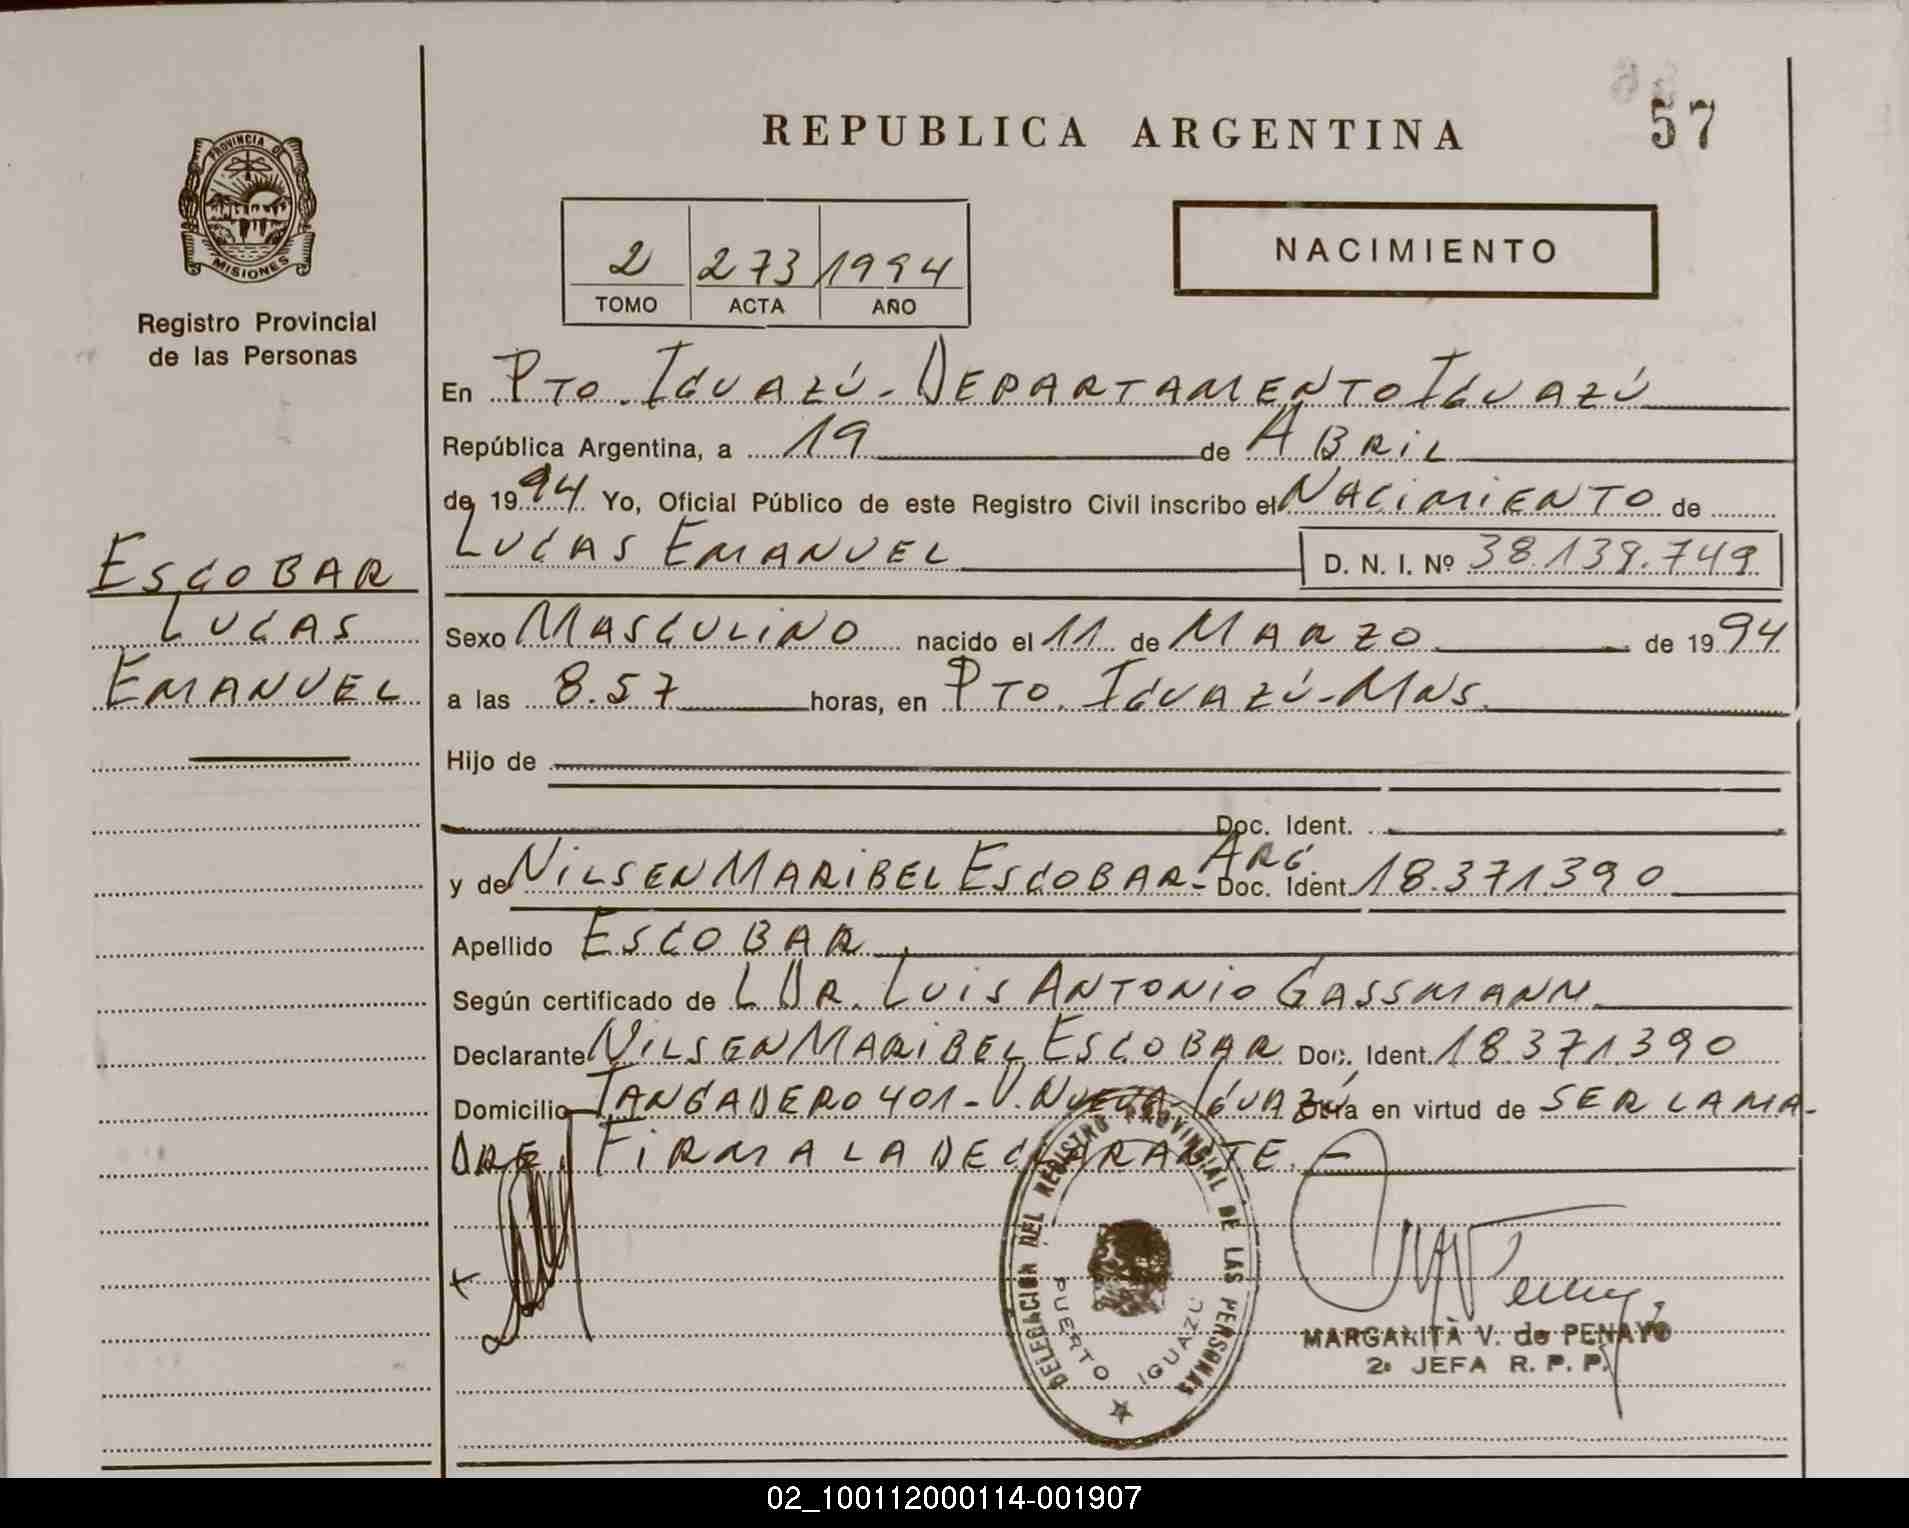 REPUBLICA ARGENTINA
57
PROVINCIA DE
MISIONES
Registro Provincial
de las Personas
2 273 1994
TOMO ACTA AÑO
NACIMIENTO
En PTO. IGUAZÚ - DEPARTAMENTO IGUAZÚ
República Argentina, a 19 de ABRIL
de 1994 Yo, Oficial Público de este Registro Civil inscribo el NACIMIENTO de
LUCAS EMANUEL D. N. I. Nº 38.139.749
ESCOBAR
LUCAS
EMANUEL
Sexo MASCULINO nacido el 11 de MARZO de 1994
a las 8.57 horas, en PTO. IGUAZÚ - MNS.
Hijo de
Doc. Ident.
y de NILSEN MARIBEL ESCOBAR - ARG. Doc. Ident. 18.371390
Apellido ESCOBAR
Según certificado de L DR. LUIS ANTONIO GASSMANN
Declarante NILSEN MARIBEL ESCOBAR Doc. Ident. 18371390
Domicilio TANGADERO 401 - V. NUEVA - IGUAZÚ, Obra en virtud de SER LA MA-
DRE. FIRMA LA DECLARANTE. -
DELEGACION DEL REGISTRO PROVINCIAL DE LAS PERSONAS
PUERTO IGUAZU
MARGARITA V. de PENAYO
2ª JEFA R. P. P.
02_100112000114-001907